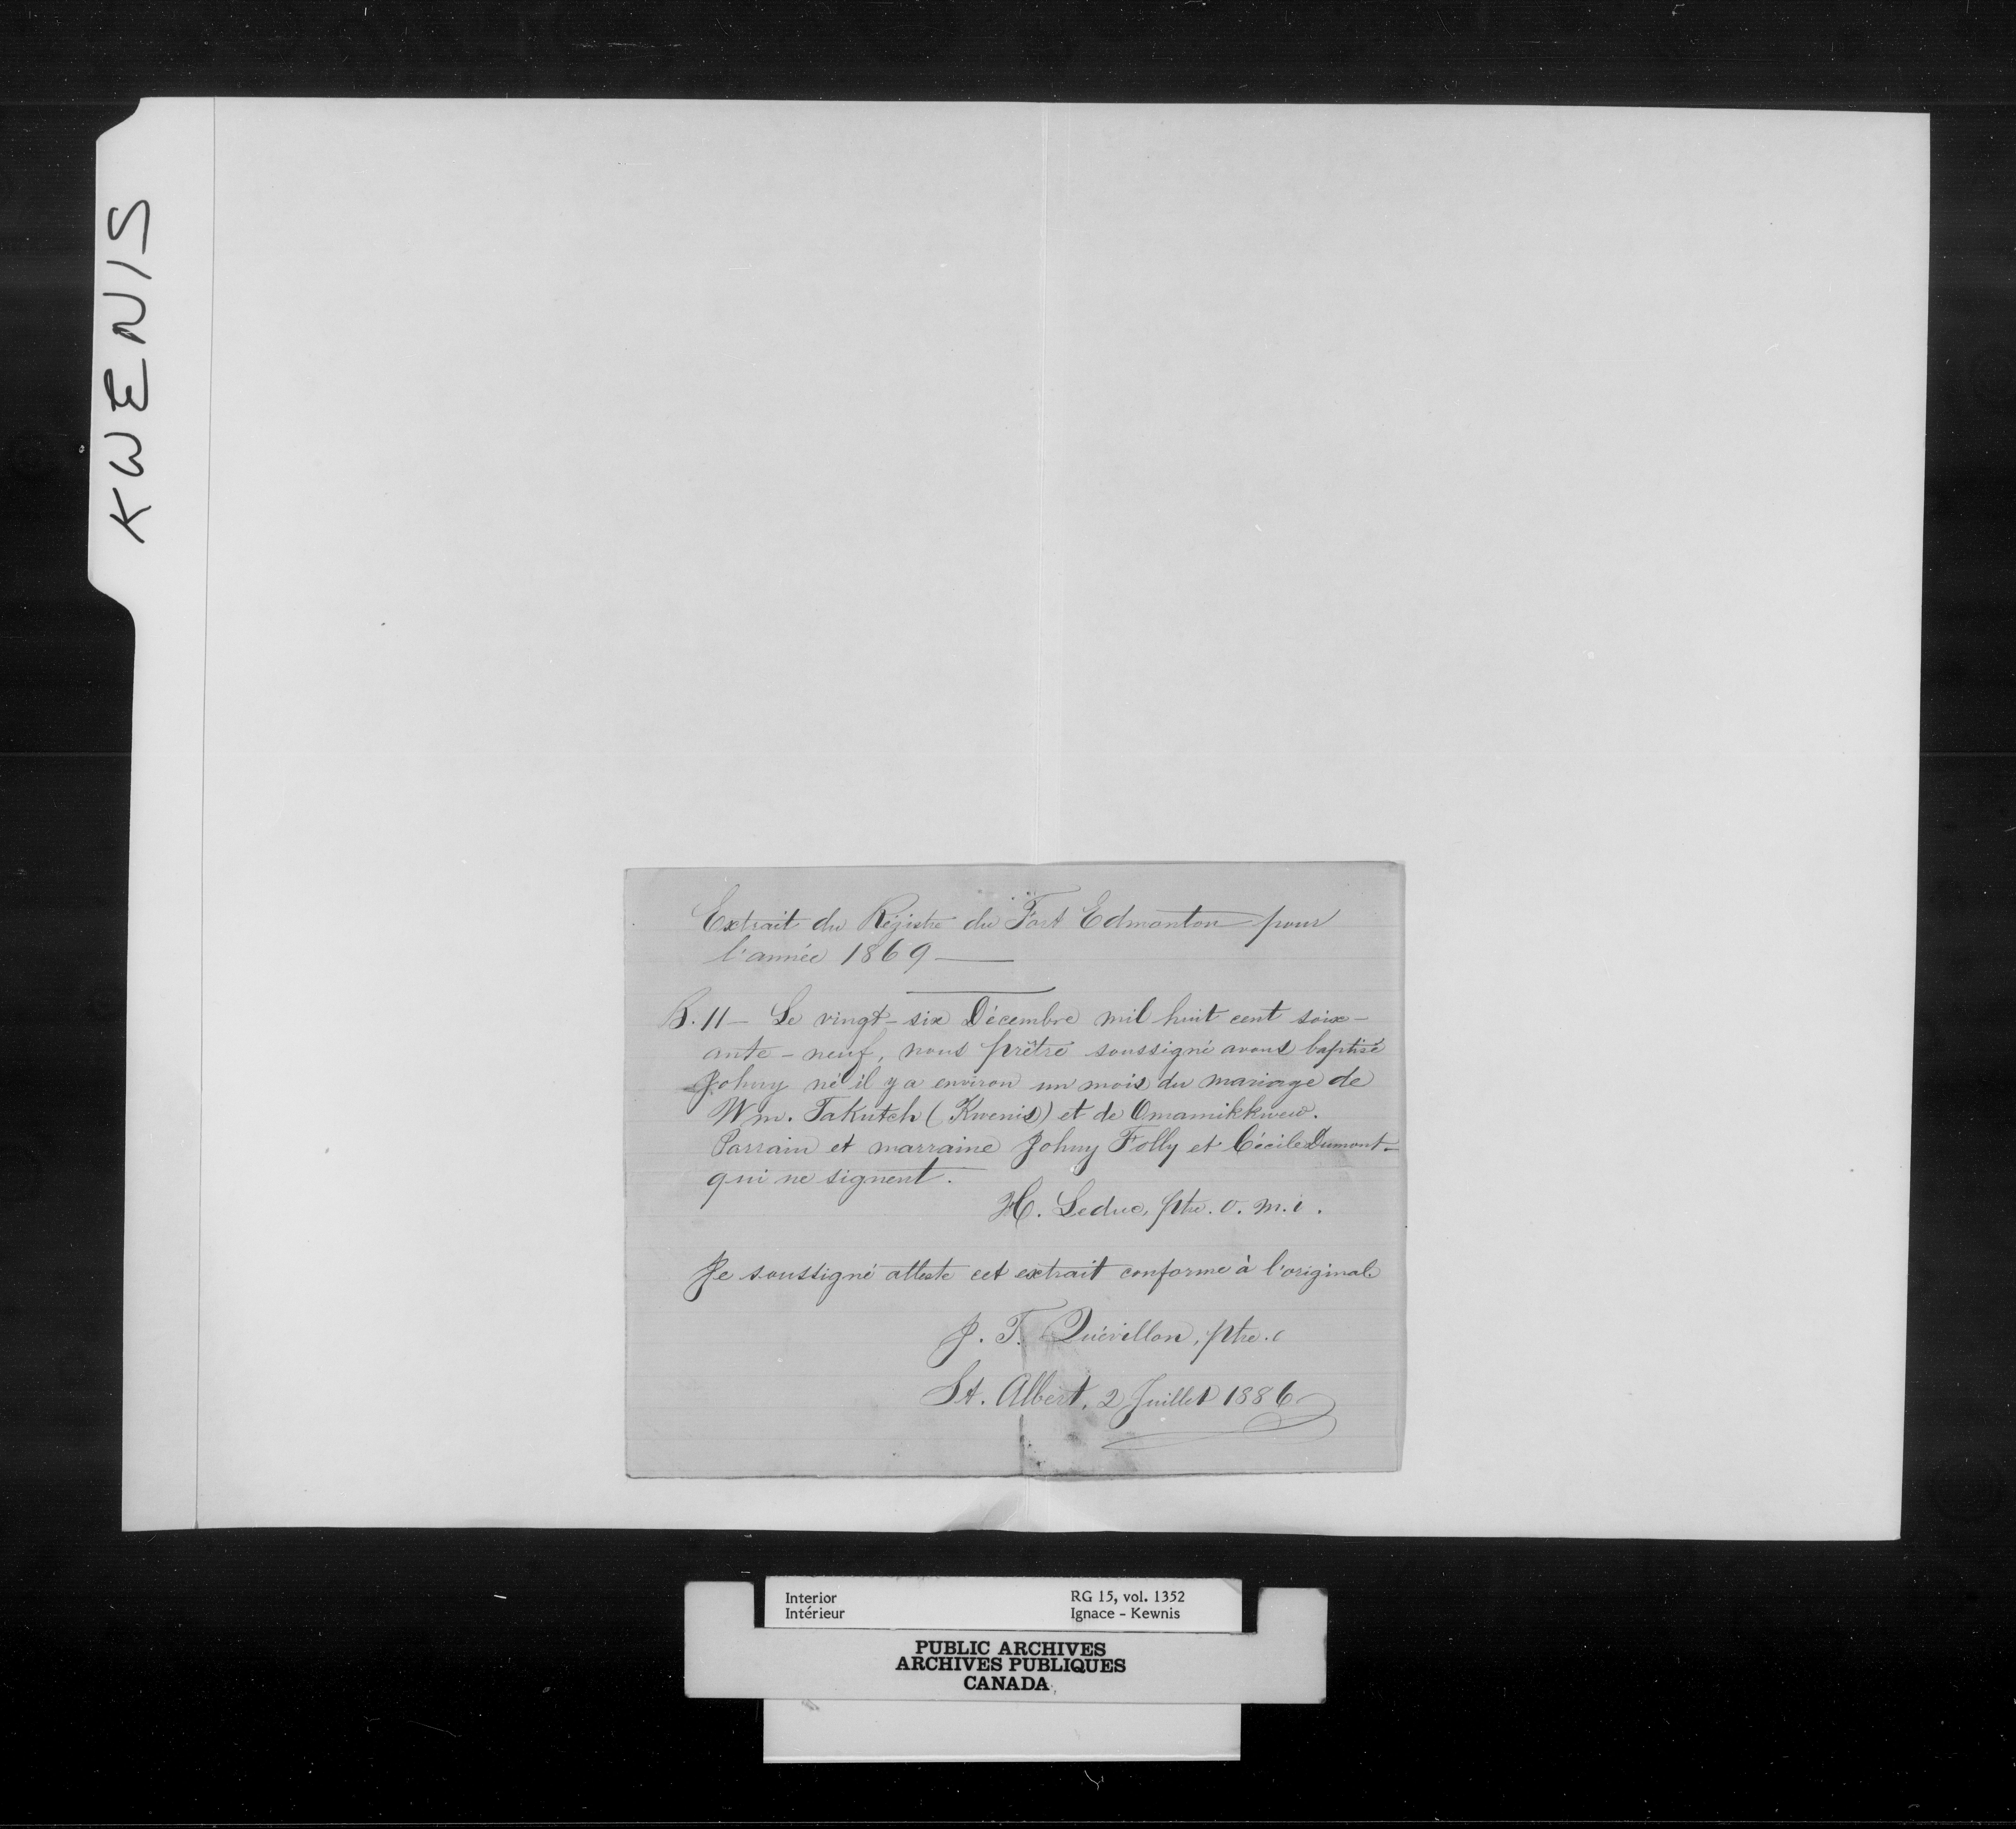 KWENIS
Extrait du Régistre du Fort Edmonton pour
l'année 1869 —
B. 11 — Le vingt-six Décembre mil huit cent soix-
ante-neuf, nous prêtre soussigné avons baptisé
Johny né il y a environ un mois du mariage de
Wm. Takutch (Kwenis) et de Omamikkwew.
Parrain et marraine Johny Folly et Cécile Dumont —
qui ne signent.
H. Leduc, ptre. o. m. i.
Je soussigné atteste cet extrait conforme à l'original
J. T. Quévillon, ptre.
St. Albert, 2 Juillet 1886
Interior RG 15, vol. 1352
Intérieur Ignace - Kewnis
PUBLIC ARCHIVES
ARCHIVES PUBLIQUES
CANADA